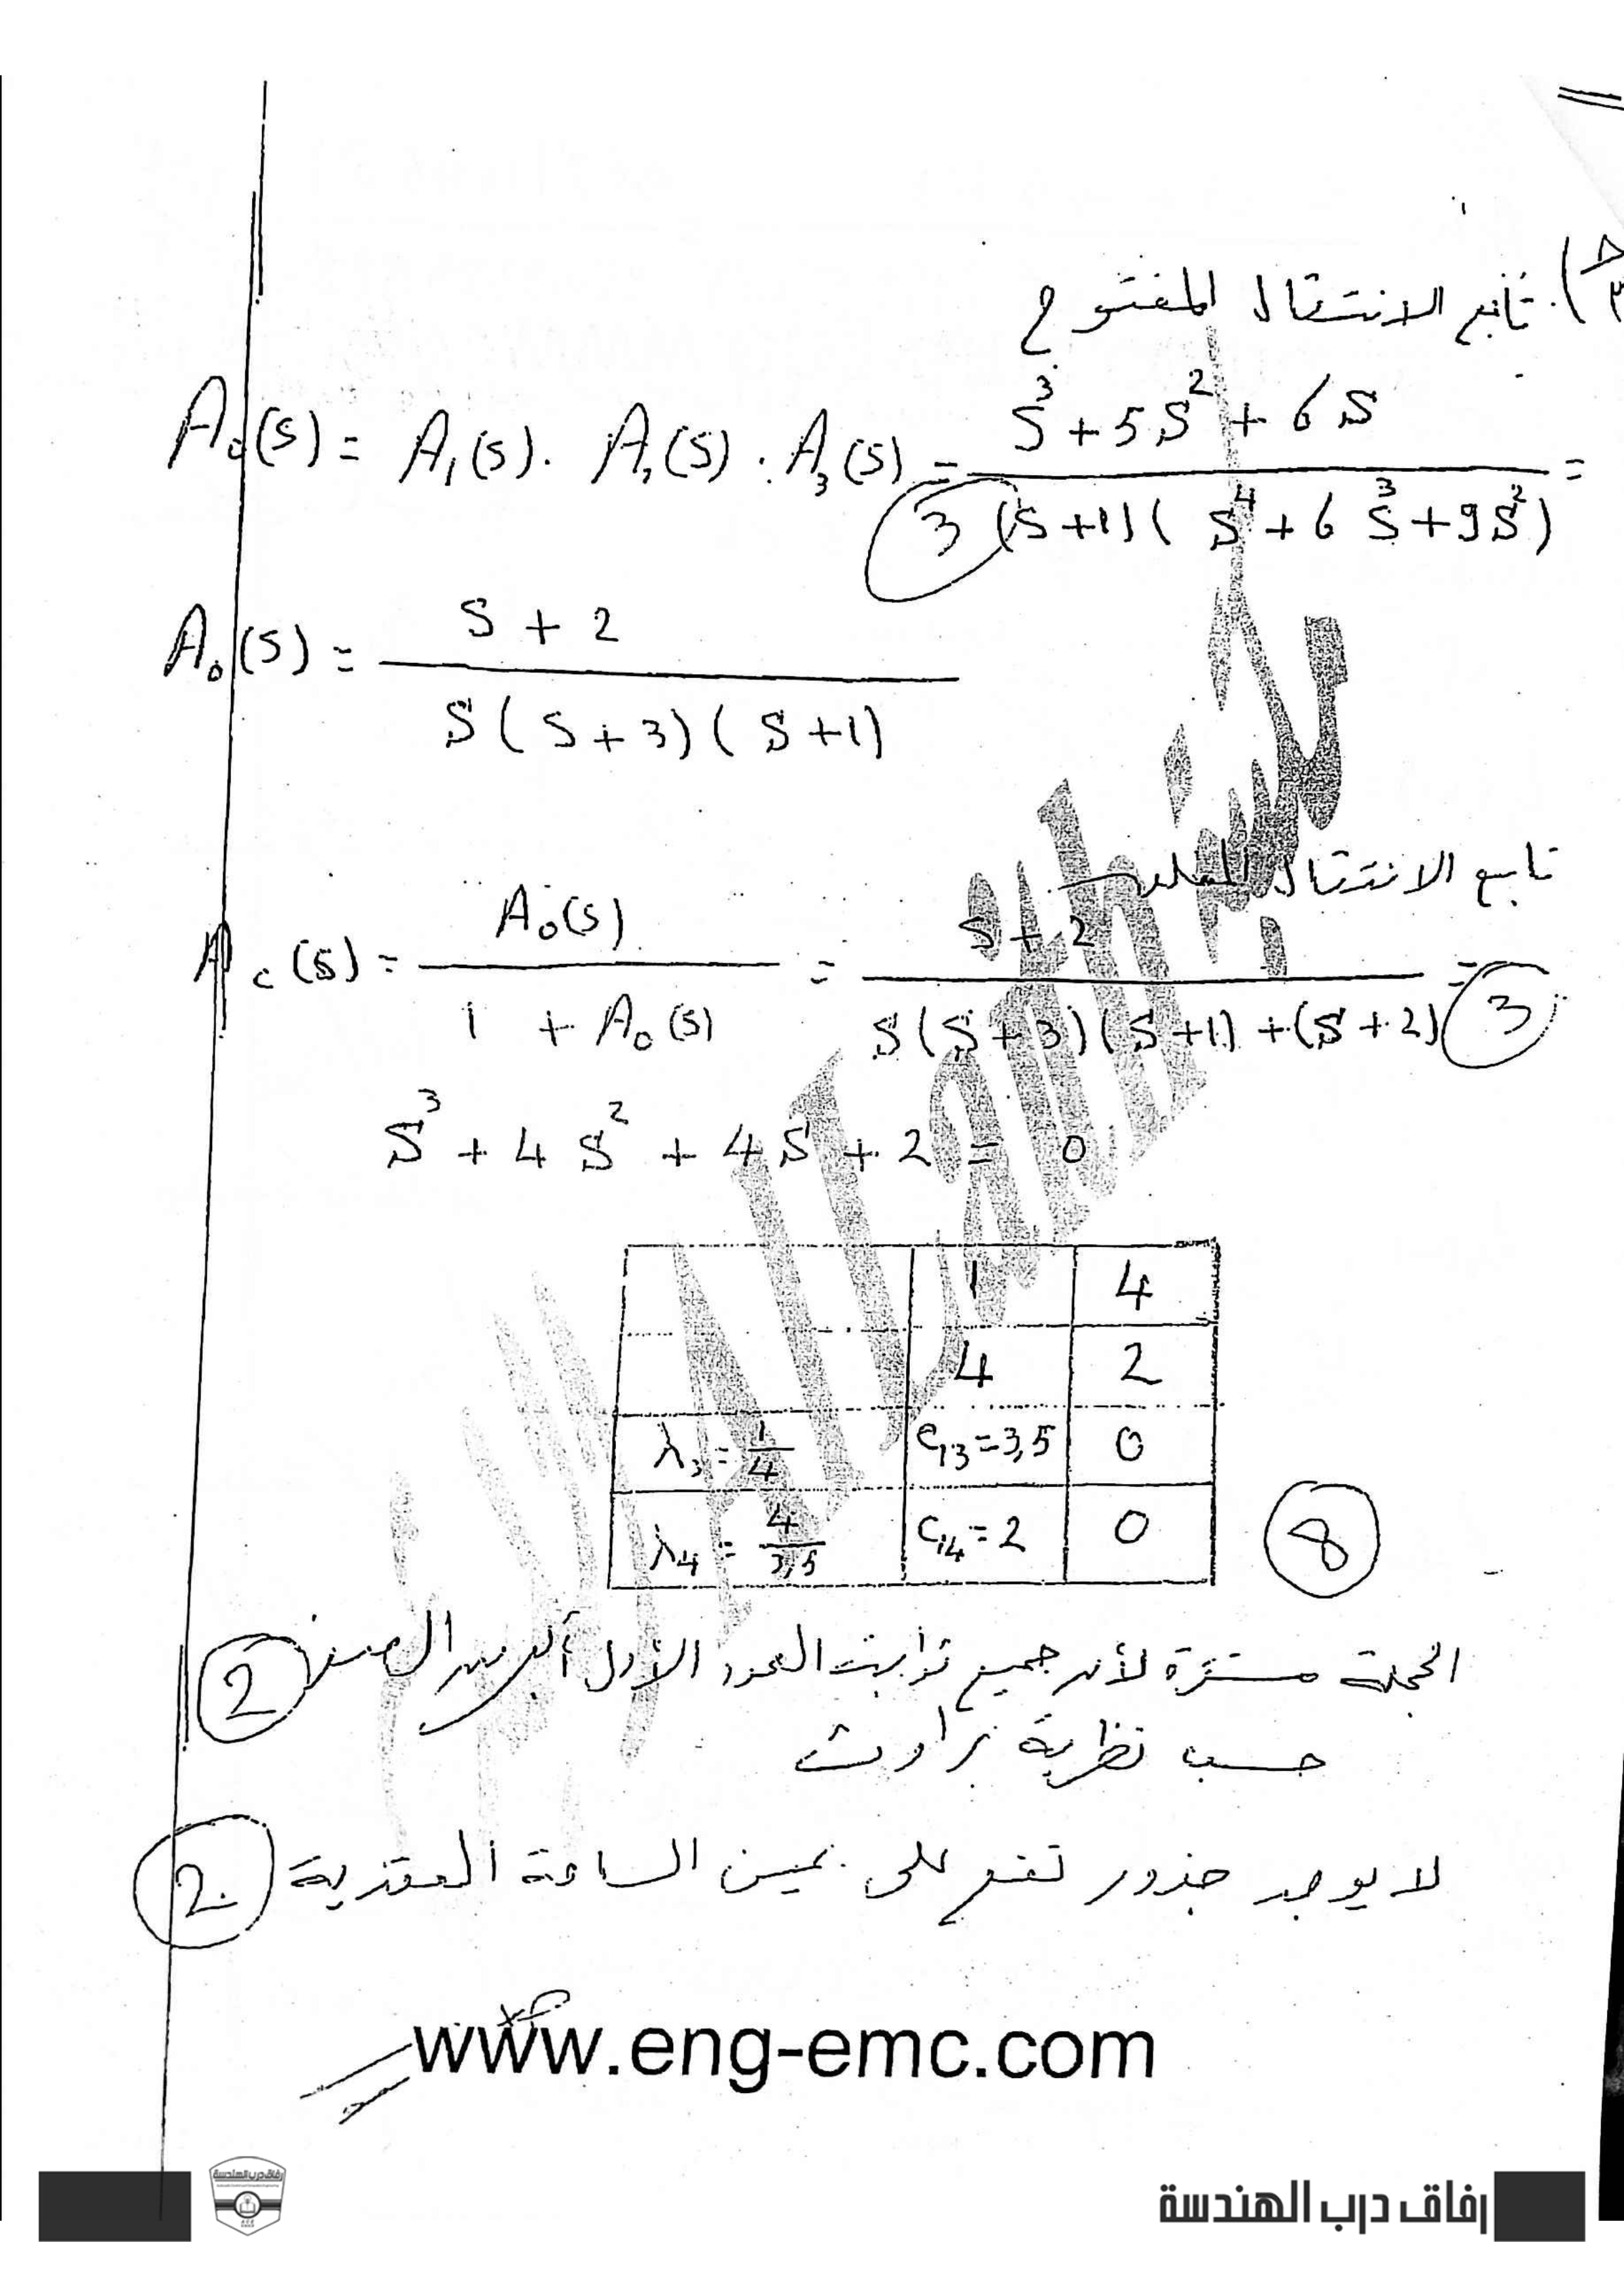 تابع الانتقال المفتوح
A₀(s) = A₁(s). A₂(s) . A₃(s) = (S³ + 5S² + 6S) / ((S+1)(S⁴ + 6S³ + 9S²)) =
3
A₀(s) = (S + 2) / (S(S+3)(S+1))
تابع الانتقال المغلق
A_c(s) = A₀(s) / (1 + A₀(s)) = (S + 2) / (S(S+3)(S+1) + (S+2)) =
3
S³ + 4S² + 4S + 2 = 0
1 4
4 2
λ₃ = 1/4 e₁₃ = 3,5 0
λ₄ = 4/3,5 c₁₄ = 2 0
8
الجملة مستقرة لأن جميع ثوابت العمود الأول أكبر من الصفر 2
حسب نظرية راوث
لا يوجد جذور تقع على يمين الساحة العقدية 2
www.eng-emc.com
رفاق درب الهندسة